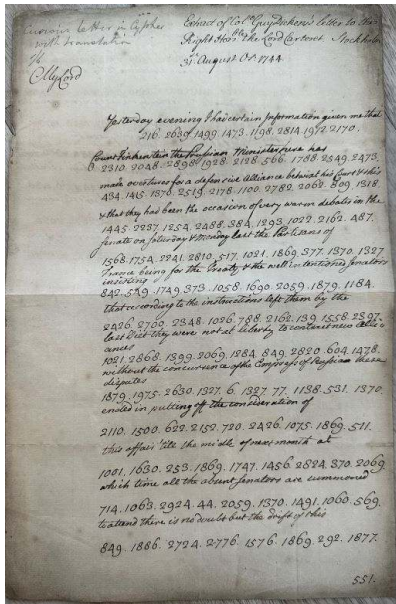 Curious Letter in Cypher
with translation
Extract of Colo. Guy Dickens's letter to the
Right Honble the Lord Carteret Stockholm
31st August OS 1744
My Lord
Yesterday evening I had certain Information given me that
216. 2630. 1499. 1473. 1198. 2814. 1972. 2170.
Count Finkenstein the Prussian Minister here has
2310. 2048. 2898. 1928. 2128. 566. 1788. 2549. 2473.
made overtures for a defensive Alliance betwixt his Court & this
434. 1415. 1370. 2519. 2178. 1100. 2782. 2062. 809. 1318
& that they had been the occasion of very warm debates in the
1445. 2237. 1254. 2488. 384. 1293. 1022. 2162. 487.
Senate on Saturday & Monday last the Partizans of
1568. 1754. 2241. 2810. 517. 1021. 1869. 377. 1370. 1327
France being for the Treaty & the well intentioned Senators
insisting
842. 549. 1749. 373. 1058. 1690. 2059. 1879. 1184.
that according to the instructions left them by the
2426. 2700. 2348. 1026. 788. 2162. 139. 1558. 2397.
last Diet they were not at liberty to contract new Alli
ances
1021. 2868. 1399. 2069. 1284. 849. 2820. 604. 1478.
without the concurrence of the Empress of Russia these
disputes
1879. 1975. 2630. 1327. 6. 1327. 77. 1138. 531. 1370.
ended in putting off the consideration of
2110. 1500. 622. 2152. 720. 2426. 1075. 1869. 511.
this affair 'till the middle of next month at
1001. 1630. 253. 1869. 1747. 1456. 2524. 370. 2069
which time all the absent Senators are summoned
714. 1063. 2924. 44. 2059. 1370. 1491. 1060. 569.
to attend there is no doubt but the drift of this
849. 1886. 2724. 2776. 1576. 1869. 292. 1877.
551.